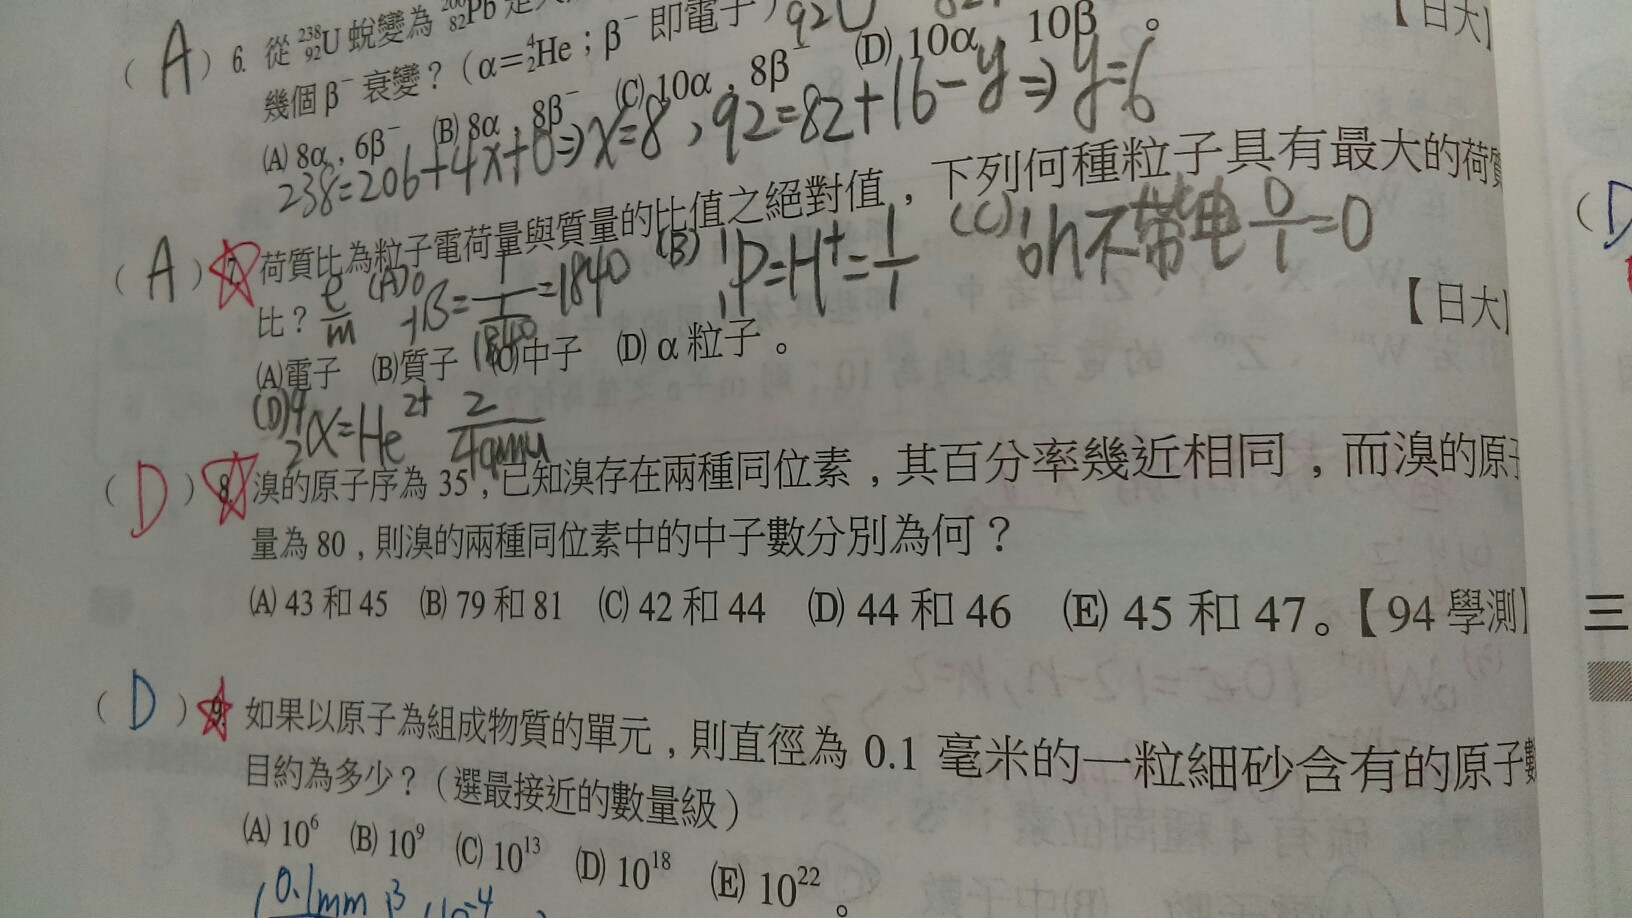 (A) 6. 從 ²³⁸₉₂U 蛻變為 ²⁰⁶₈₂Pb 是
【日大】
幾個 β⁻ 衰變？（α＝⁴₂He；β⁻ 即電子）
(A) 8α，6β⁻ (B) 8α，8β⁻ (C) 10α，8β⁻ (D) 10α，10β⁻。
238=206+4x+0⇒x=8，92=82+16-y⇒y=6
(A) 7. 荷質比為粒子電荷量與質量的比值之絕對值，下列何種粒子具有最大的荷質
比？ e/m (A) ⁰₋₁β=1/(1/1840)=1840 (B) ¹₁P=H⁺=1/1 (C) ¹₀n不帶電 0/1=0
【日大】
(A)電子 (B)質子 (C)中子 (D) α 粒子。
(D) ⁴₂α=He²⁺ 2/4amu
(D) 8. 溴的原子序為 35，已知溴存在兩種同位素，其百分率幾近相同，而溴的原子
量為 80，則溴的兩種同位素中的中子數分別為何？
(A) 43 和 45 (B) 79 和 81 (C) 42 和 44 (D) 44 和 46 (E) 45 和 47。【94 學測】
三
(D) 9. 如果以原子為組成物質的單元，則直徑為 0.1 毫米的一粒細砂含有的原子數
目約為多少？（選最接近的數量級）
(A) 10⁶ (B) 10⁹ (C) 10¹³ (D) 10¹⁸ (E) 10²²。
0.1mm